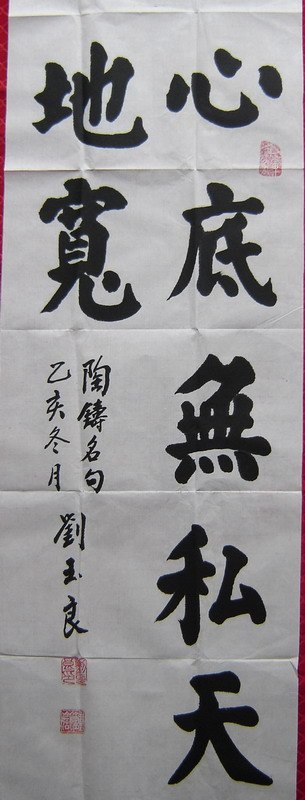 心底無私天
地寬
陶鑄名句
乙亥冬月
劉玉良